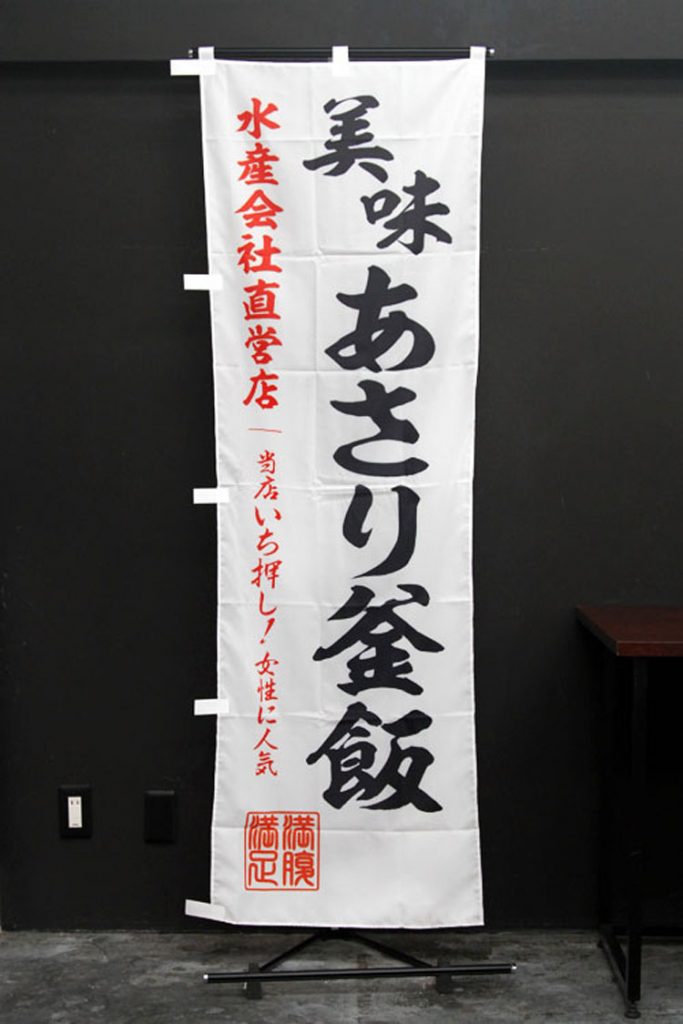 美味
あさり釜飯
水産会社直営店
当店いち押し！女性に人気
満腹
満足